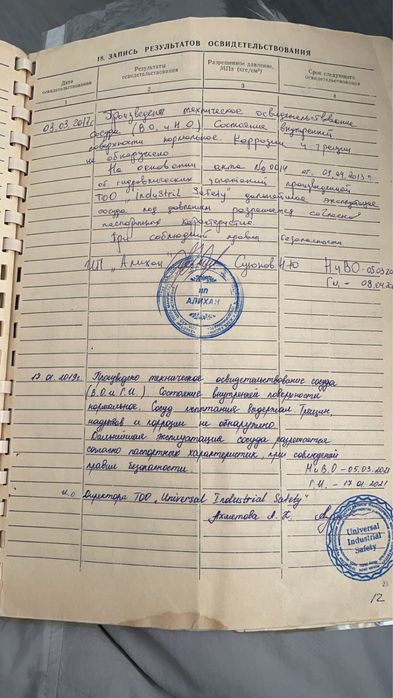 18. ЗАПИСЬ РЕЗУЛЬТАТОВ ОСВИДЕТЕЛЬСТВОВАНИЯ
Дата освидетельствования
Результаты освидетельствования
Разрешенное давление, МПа (кгс/см²)
Срок следующего освидетельствования
1 2 3 4
03.03.2017г. Произведено техническое освидетельствование
сосуда (В.О. и Н.О) Состояние внутренней
поверхности нормальное. Коррозии и трещин
не обнаружено
На основании акта № 0014 от
от гидравлических испытаний произведенной
ТОО "Industril Safety" дальнейшее эксплуатация
сосуда под давлением разрешается согласно
паспортных характеристик
При соблюдений правил безопасности
ИП "Алихан" Н и ВО - 05.03
Г.и. - 08.04
ИП
АЛИХАН
17.01.2019г. Произведено техническое освидетельствование сосуда
(В.О. и Г.И.) Состояние внутренней поверхности
нормальное. Сосуд испытания выдержал. Трещин,
надрывов и коррозии не обнаружено.
Дальнейшая эксплуатация сосуда разрешается
согласно паспортных характеристик, при соблюдений
правил безопасности.
Н и В.О - 05.03.2021
Г.И. - 17.01.2021
и.о Директора ТОО "Universal Industrial Safety"
Ахметова А. К.
Universal
Industrial
Safety
12